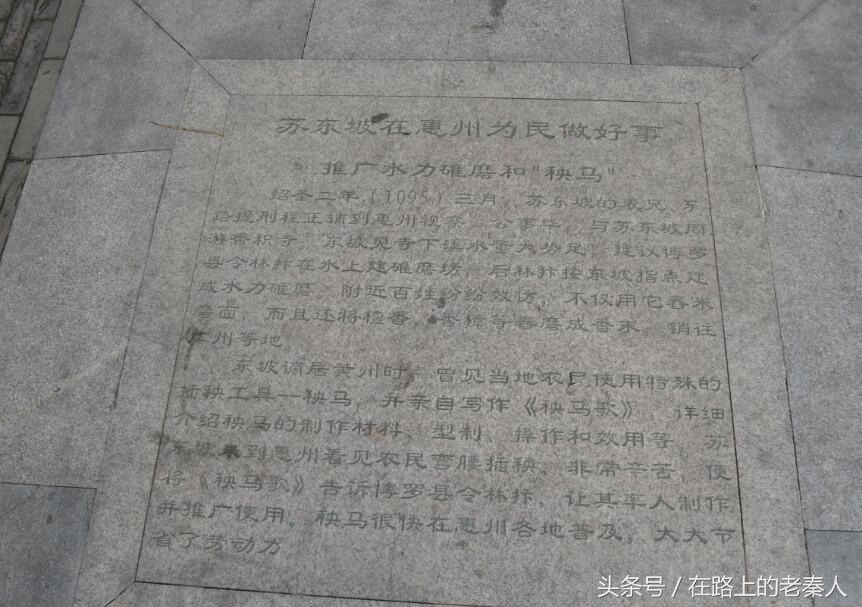 苏东坡在惠州为民做好事
推广水力碓磨和"秧马"
绍圣二年（1095）三月，苏东坡的表兄、东
路提刑程正辅到惠州视察，公事毕，与苏东坡同
游香积寺。东坡见寺下溪水量大势足，建议博罗
县令林抃在水上建碓磨坊。后林抃按东坡指点建
成水力碓磨，附近百姓纷纷效仿，不仅用它舂米
磨面，而且还将檀香、香樟等舂磨成香末，销往
广州等地。
东坡谪居黄州时，曾见当地农民使用特殊的
插秧工具--秧马，并亲自写作《秧马歌》，详细
介绍秧马的制作材料、型制、操作和效用等。苏
东坡来到惠州看见农民弯腰插秧，非常辛苦，便
将《秧马歌》告诉博罗县令林抃，让其率人制作
并推广使用。秧马很快在惠州各地普及，大大节
省了劳动力
头条号 / 在路上的老秦人